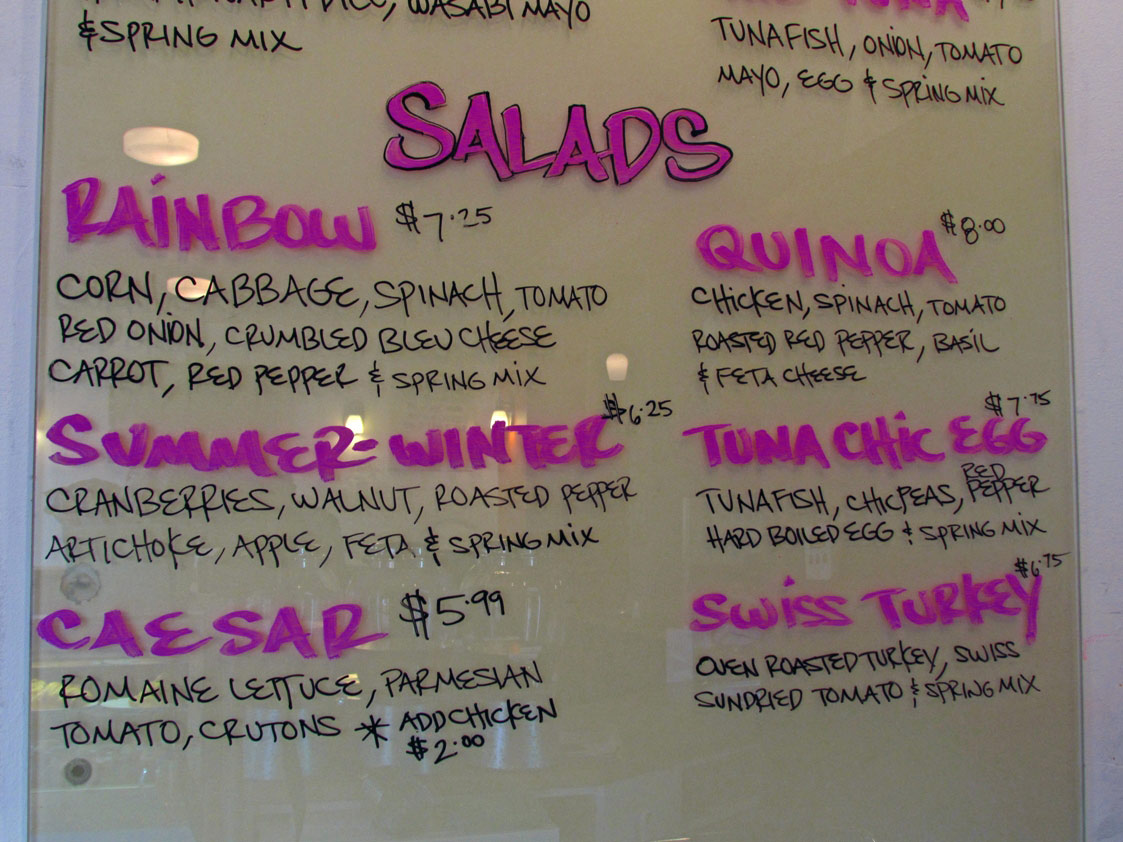 WASABI MAYO
& SPRING MIX
TUNA
TUNAFISH, ONION, TOMATO
MAYO, EGG & SPRING MIX
SALADS
RAINBOW $7.25
CORN, CABBAGE, SPINACH, TOMATO
RED ONION, CRUMBLED BLEU CHEESE
CARROT, RED PEPPER & SPRING MIX
SUMMER-WINTER $6.25
CRANBERRIES, WALNUT, ROASTED PEPPER
ARTICHOKE, APPLE, FETA & SPRING MIX
CAESAR $5.99
ROMAINE LETTUCE, PARMESIAN
TOMATO, CRUTONS * ADD CHICKEN
$2.00
QUINOA $8.00
CHICKEN, SPINACH, TOMATO
ROASTED RED PEPPER, BASIL
& FETA CHEESE
TUNA CHIC EGG $7.75
TUNAFISH, CHICPEAS, RED PEPPER
HARD BOILED EGG & SPRING MIX
SWISS TURKEY $6.75
OVEN ROASTED TURKEY, SWISS
SUNDRIED TOMATO & SPRING MIX